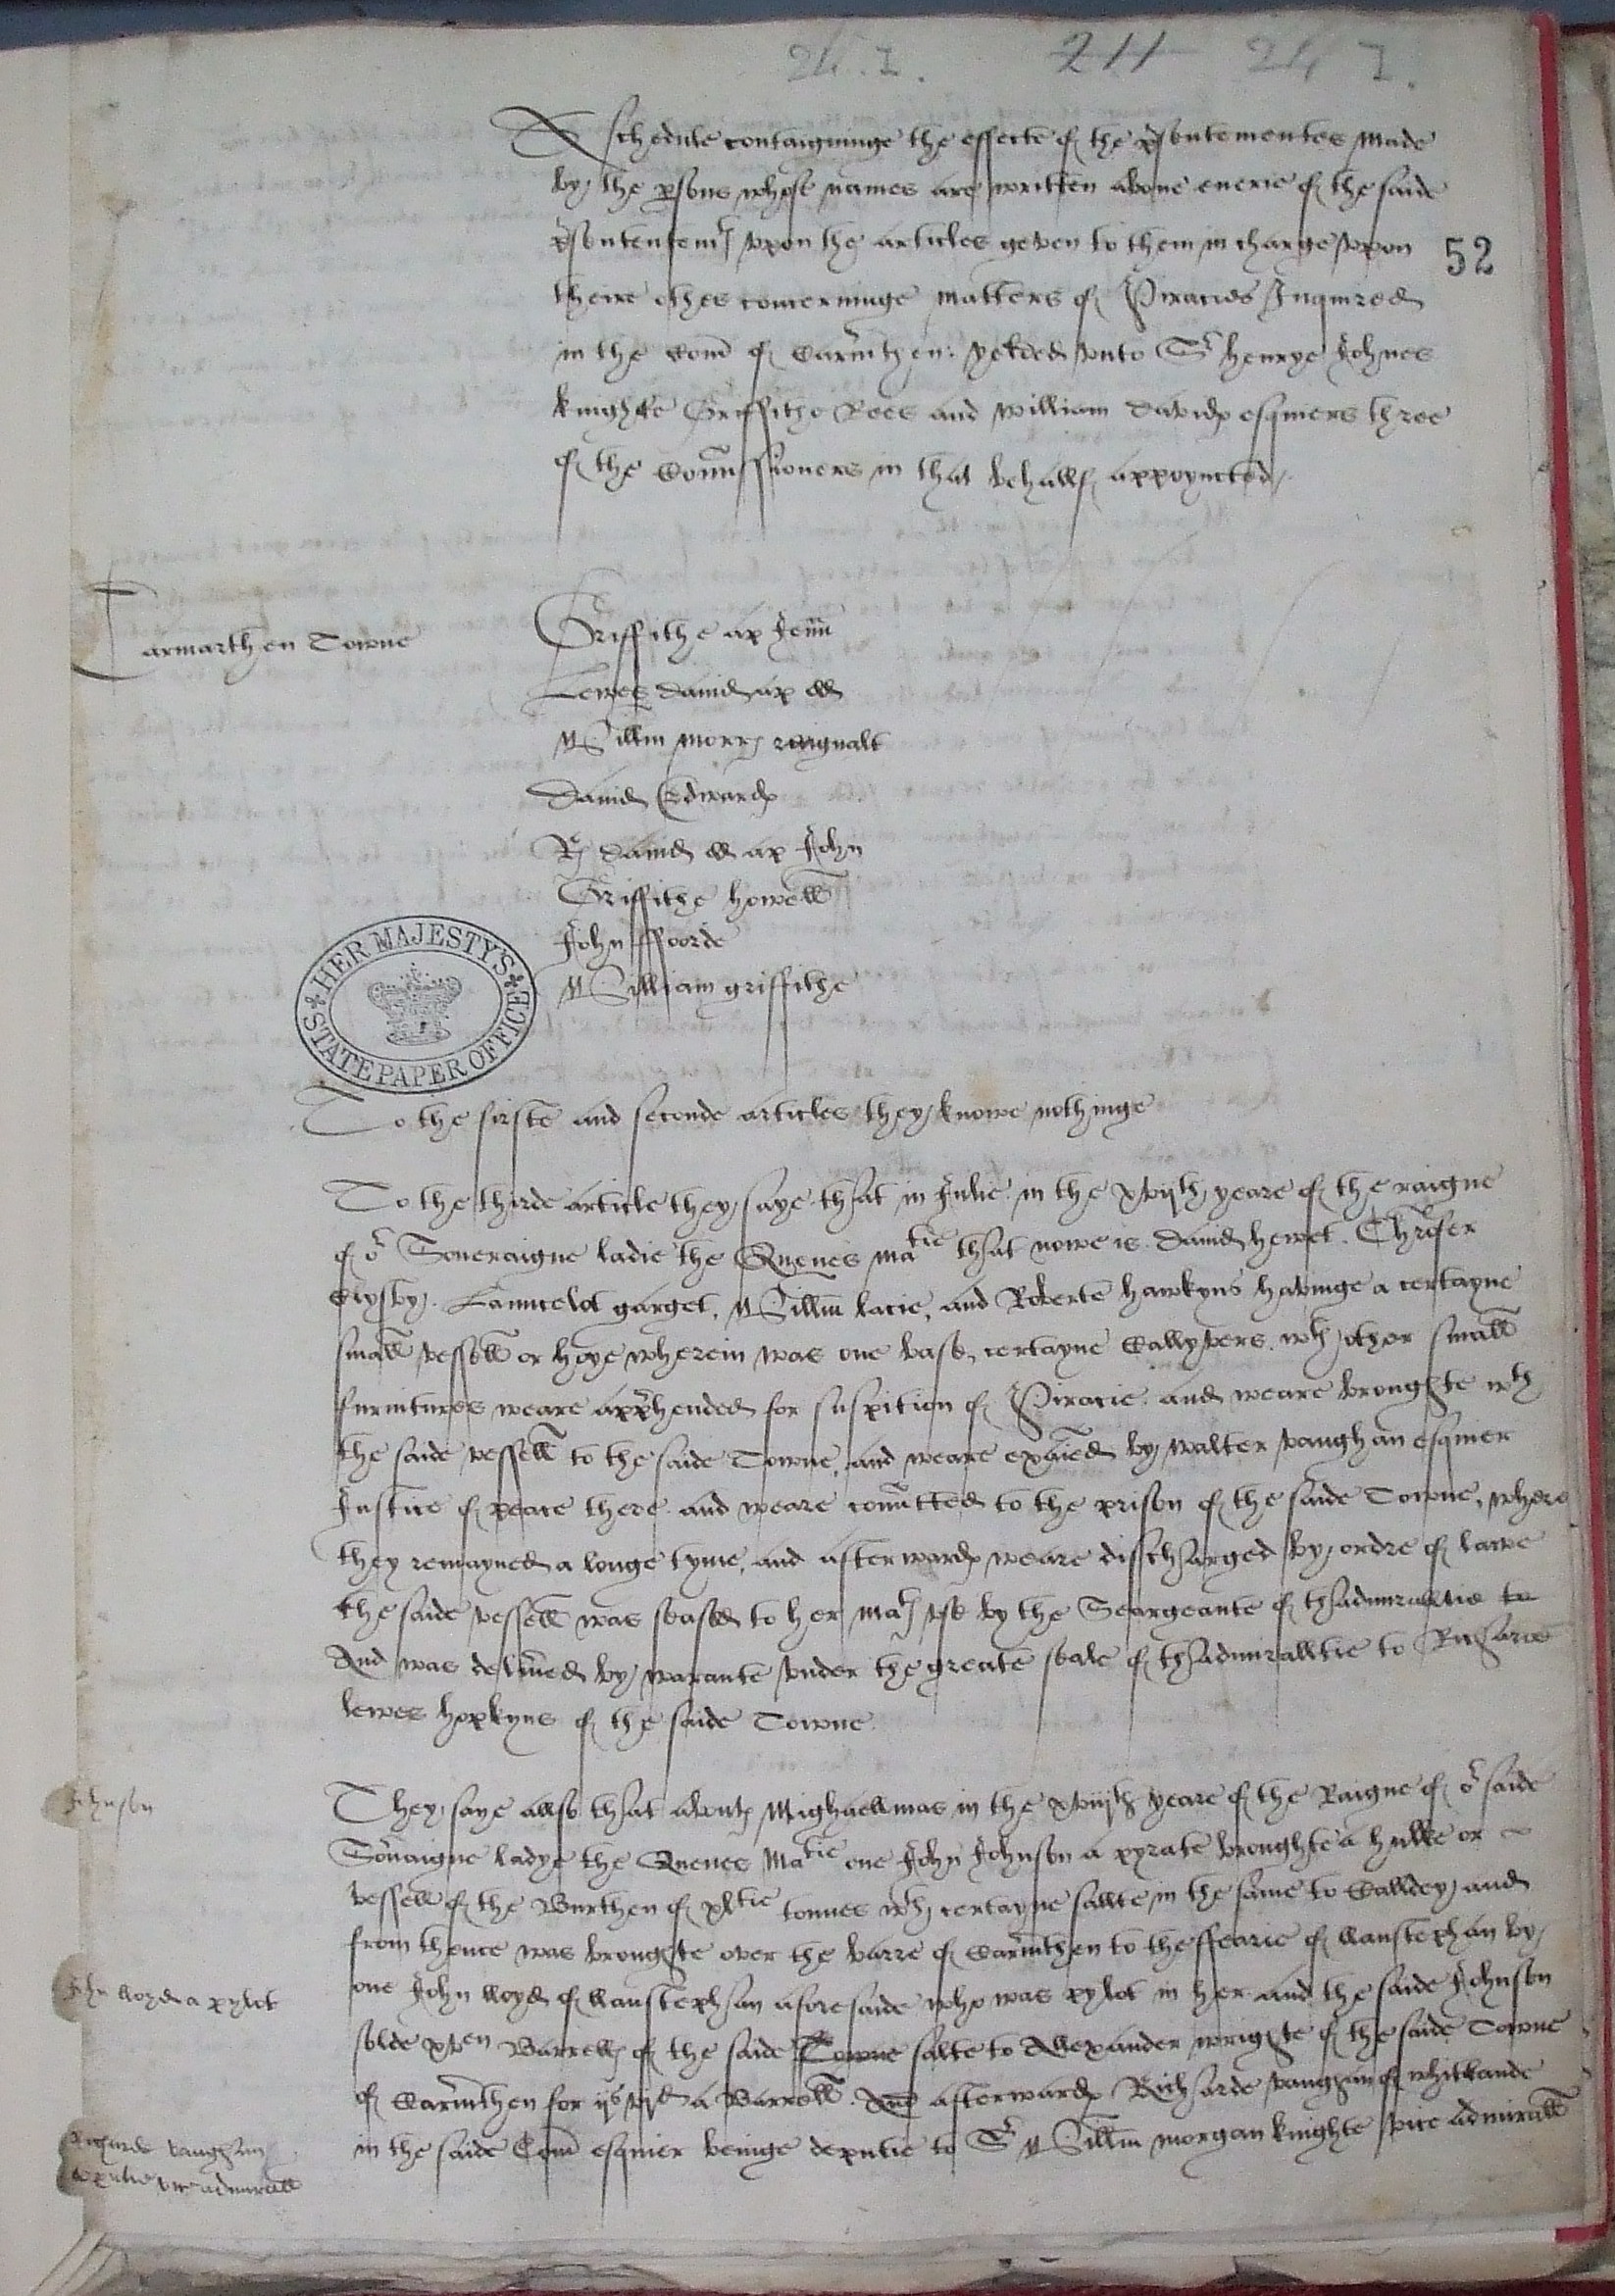 24.I. 211 24 I.
A schedule contaigninge the effecte of the p'sentementes made
by the p'sons whose names are written above everie of the saide
p'sentementꝭ upon the articles geven to them in charge upon
52
theire othes concerninge matters of Piracies Inquired
in the Com̃ of Carm'then: yelded unto Sr Henrye Johnes
knighte Griffithe Rees and William Davidꝭ esquiers three
of the Com̃issioners in that behallf appoyncted
Carmarthen Towne
Griffithe ap Jeuñ
Lewes David ap ll
Willm Morrꝭ
David Edwardꝭ
Rꝭ David ll ap John
Griffithe Howell
John ffoorde
William Griffithe
HER MAJESTY'S STATE PAPER OFFICE
To the firste and seconde articles they knowe nothinge
To the thirde article they saye that in Julie in the xvijth yeare of the raigne
of or Soveraigne ladie the Quenes matie that nowe is David Hewet. Chr'ofer
Launcelot Garget, Willm Lacie, and Roberte Hawkyns havinge a certayne
small vessell or hoye wherein was one base, certayne Callyvers wth other small
furnitures weare app'hended for suspition of Piracie and weare broughte wth
the saide vessell to the saide Towne, and weare exãied by Walter Vaughan esquier
Justice of peace there and weare com̃itted to the prison of the saide Towne, where
they remayned a longe tyme, and afterwardꝭ weare disscharged by ordre of lawe
the saide vessell was seased to her matꝭ use by the Seargeante of thadmiralltie to
And was delivˀed by warante under the greate seale of thadmiralltie to Richarde
lewes hopkyns of the saide Towne.
Johnson
They saye allso that aboutꝭ Mighaellmas in the xviijth yeare of the Raigne of or saide
Sovˀaigne ladye the Quenes Matie one John Johnson a pyrate broughte a hulke or
vessell of the Burthen of xltie tonnes wth certayne sallte in the same to Calldey, and
from thence was broughte over the barre of Carm'then to the ffearie of llanstephan by
John lloyd a pylot
one John lloyd of llanstephan aforesaide who was pylot in her and the saide Johnson
solde xven Barrellꝭ of the saide Towne salte to Allexander Wrighte of the saide Towne
of Carm'then for ijs vjd a Barrell. And afterwardꝭ Richarde Vaughan of Whitlande
Richarde Vaughan
deputie vice admirall
in the saide Com̃ esquier beinge deputie to Sr Willm Morgan knighte vice admirall